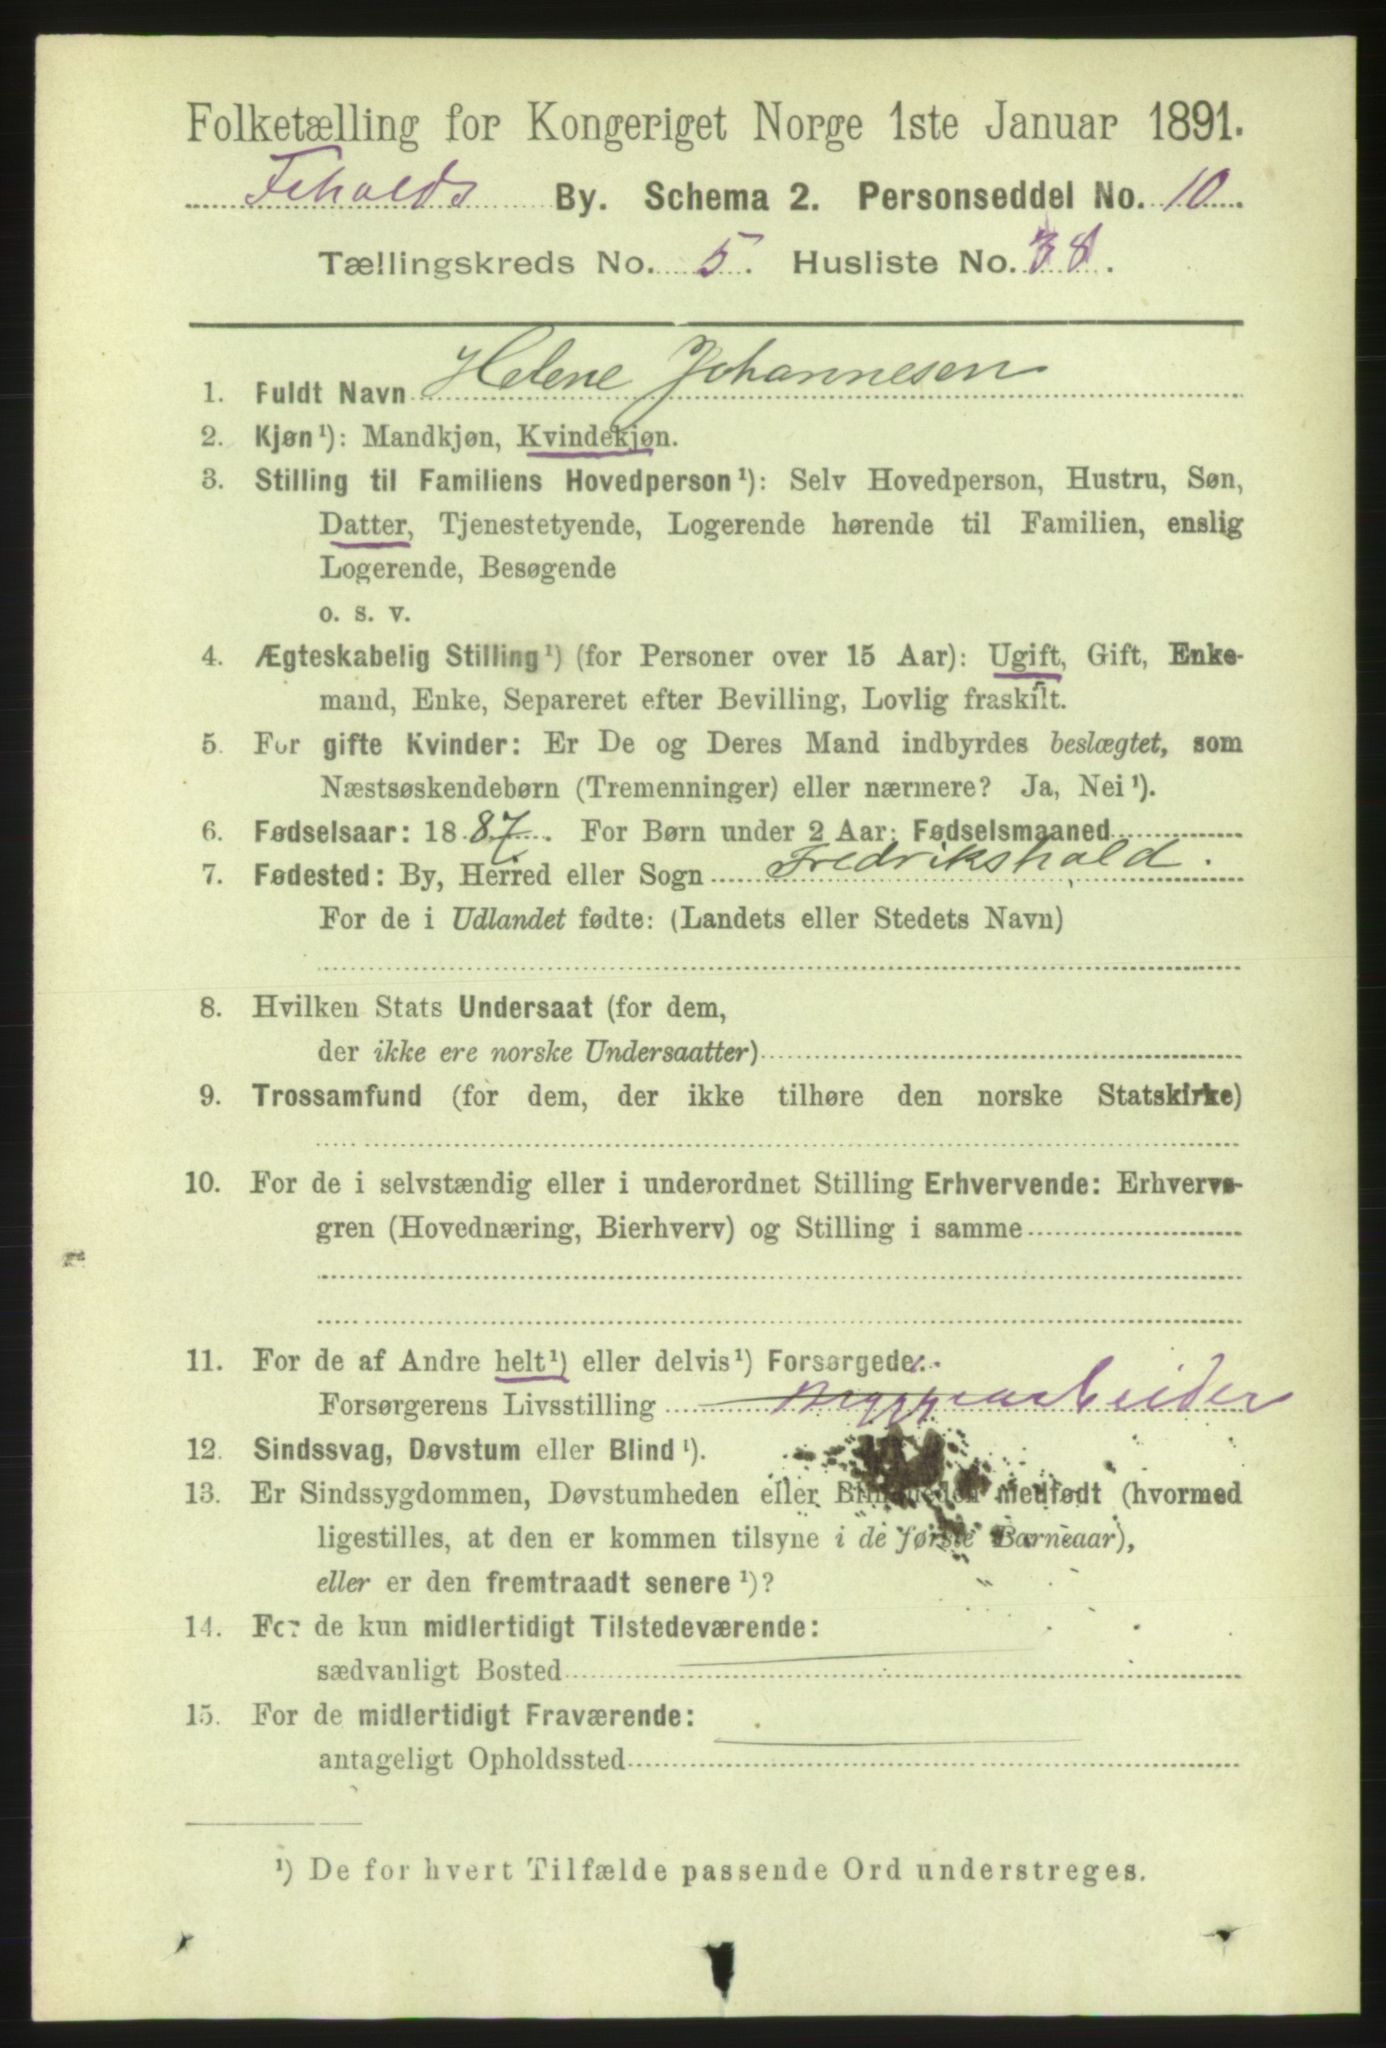 Folketælling for Kongeriget Norge 1ste Januar 1891.
Fhalds By. Schema 2. Personseddel No. 10.
Tællingskreds No. 5. Husliste No. 38.
1. Fuldt Navn Helene Johannesen
2. Kjøn¹): Mandkjøn, Kvindekjøn.
3. Stilling til Familiens Hovedperson¹): Selv Hovedperson, Hustru, Søn,
Datter, Tjenestetyende, Logerende hørende til Familien, enslig
Logerende, Besøgende
o. s. v.
4. Ægteskabelig Stilling¹) (for Personer over 15 Aar): Ugift, Gift, Enke-
mand, Enke, Separeret efter Bevilling, Lovlig fraskilt.
5. For gifte Kvinder: Er De og Deres Mand indbyrdes beslægtet, som
Næstsøskendebørn (Tremenninger) eller nærmere? Ja, Nei¹).
6. Fødselsaar: 1887. For Børn under 2 Aar: Fødselsmaaned
7. Fødested: By, Herred eller Sogn Fredrikshald.
For de i Udlandet fødte: (Landets eller Stedets Navn)
8. Hvilken Stats Undersaat (for dem,
der ikke ere norske Undersaatter)
9. Trossamfund (for dem, der ikke tilhøre den norske Statskirke)
10. For de i selvstændig eller i underordnet Stilling Erhvervende: Erhvervs-
gren (Hovednæring, Bierhverv) og Stilling i samme
11. For de af Andre helt¹) eller delvis¹) Forsørgede:
Forsørgerens Livsstilling
12. Sindssvag, Døvstum eller Blind¹).
13. Er Sindssygdommen, Døvstumheden eller Blindheden medfødt (hvormed
ligestilles, at den er kommen tilsyne i de første Barneaar),
eller er den fremtraadt senere¹)?
14. For de kun midlertidigt Tilstedeværende:
sædvanligt Bosted
15. For de midlertidigt Fraværende:
antageligt Opholdssted
¹) De for hvert Tilfælde passende Ord understreges.